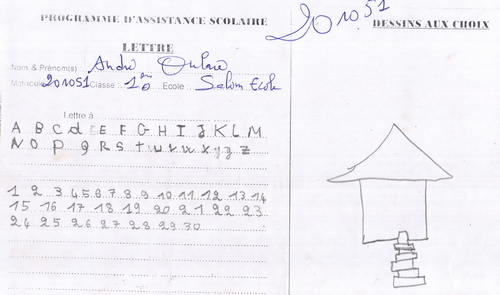 PROGRAMME D'ASSISTANCE SCOLAIRE
201051
DESSINS AUX CHOIX
LETTRE
Nom & Prénom(s) : André
Matricule 201051 Classe : 1e Ecole : Salom Ecole
Lettre à
A B C d E F G H I J K L M
N O P Q R S t u v w x y z
1 2 3 4 5 6 7 8 9 10 11 12 13 14
15 16 17 18 19 20 21 22 23
24 25 26 27 28 29 30